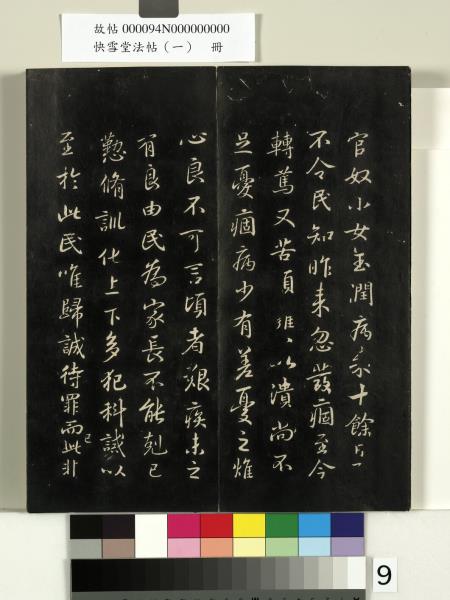 故帖 000094N000000000
快雪堂法帖（一） 冊
官奴小女玉潤病來十餘日了
不令民知昨來忽發痼至今
轉篤又苦頭癰、以潰尚不
足憂痼病少有差憂之燋
心良不可言頃者艱疾未之
有良由民為家長不能尅己
懃脩訓化上下多犯科誡以
至於此民唯歸誠待罪而已此非
9